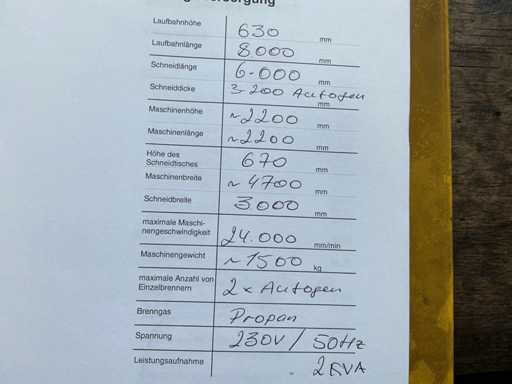 Laufbahnhöhe 630 mm
Laufbahnlänge 8000 mm
Schneidlänge 6.000 mm
Schneiddicke 3-200 Autogen mm
Maschinenhöhe ~2200 mm
Maschinenlänge ~2200 mm
Höhe des
Schneidtisches 670 mm
Maschinenbreite ~4700 mm
Schneidbreite 3000 mm
maximale Maschi-
nengeschwindigkeit 24.000 mm/min
Maschinengewicht ~1500 kg
maximale Anzahl von
Einzelbrennern 2x Autogen
Brenngas Propan
Spannung 230V / 50Hz
Leistungsaufnahme 2KVA